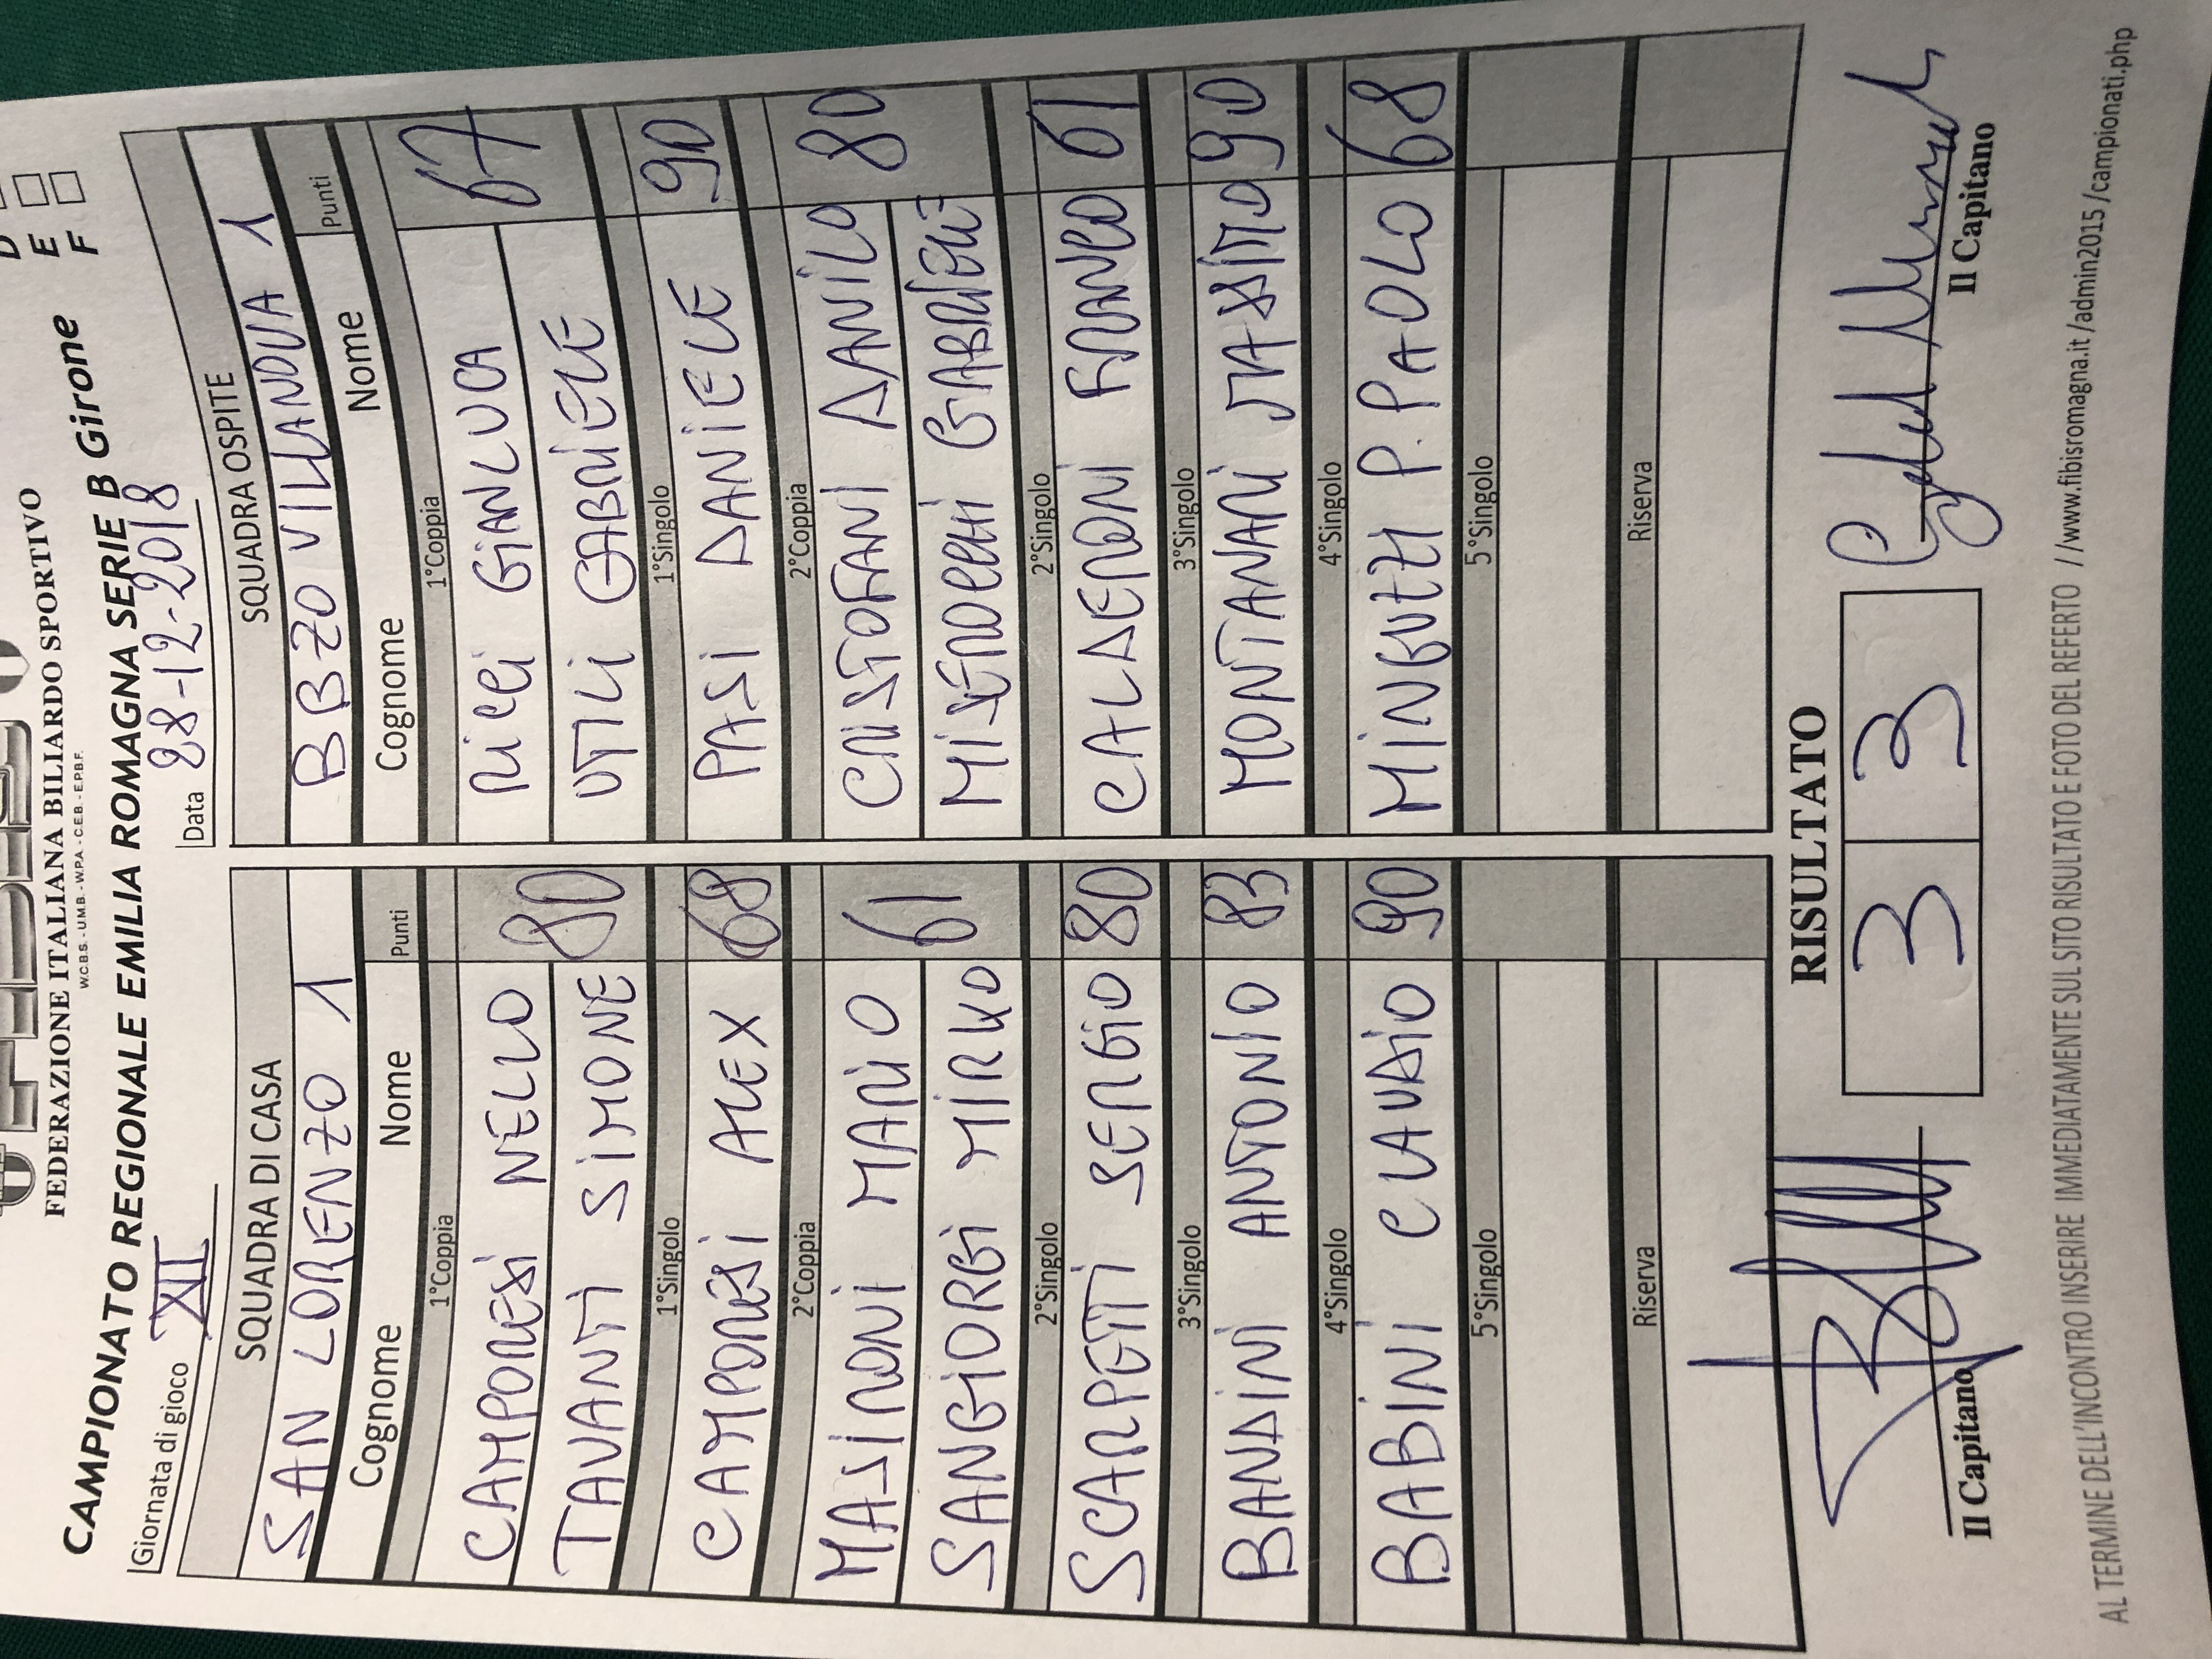 FEDERAZIONE ITALIANA BILIARDO SPORTIVO
W.C.B.S. - U.M.B. - W.P.A. - C.E.B. - E.P.B.F.
CAMPIONATO REGIONALE EMILIA ROMAGNA SERIE B Girone
D
E
F
Giornata di gioco XII Data 28-12-2018
SQUADRA DI CASA SQUADRA OSPITE
SAN LORENZO 1 BBZO VILLANOVA 1
Cognome Nome Punti Cognome Nome Punti
1°Coppia 1°Coppia
CAMPORESI NELLO 80 RICCI GIANLUCA 67
TAVANTI SIMONE UTILI GABRIELE
1°Singolo 1°Singolo
CAMPORESI ALEX 68 PASI DANIELE 90
2°Coppia 2°Coppia
MASIRONI MARIO 61 CRISTOFANI DANILO 80
SANGIORGI MIRKO MISEROCCHI GABRIELE
2°Singolo 2°Singolo
SCARPETTI SERGIO 80 CALDERONI FRANCO 61
3°Singolo 3°Singolo
BANDINI ANTONIO 83 MONTANARI MASSIMO 90
4°Singolo 4°Singolo
BABINI CLAUDIO 90 MINGUZZI P.PAOLO 68
5°Singolo 5°Singolo
Riserva Riserva
RISULTATO
3 3
Il Capitano Il Capitano
AL TERMINE DELL'INCONTRO INSERIRE IMMEDIATAMENTE SUL SITO RISULTATO E FOTO DEL REFERTO //www.fibisromagna.it/admin2015/campionati.php